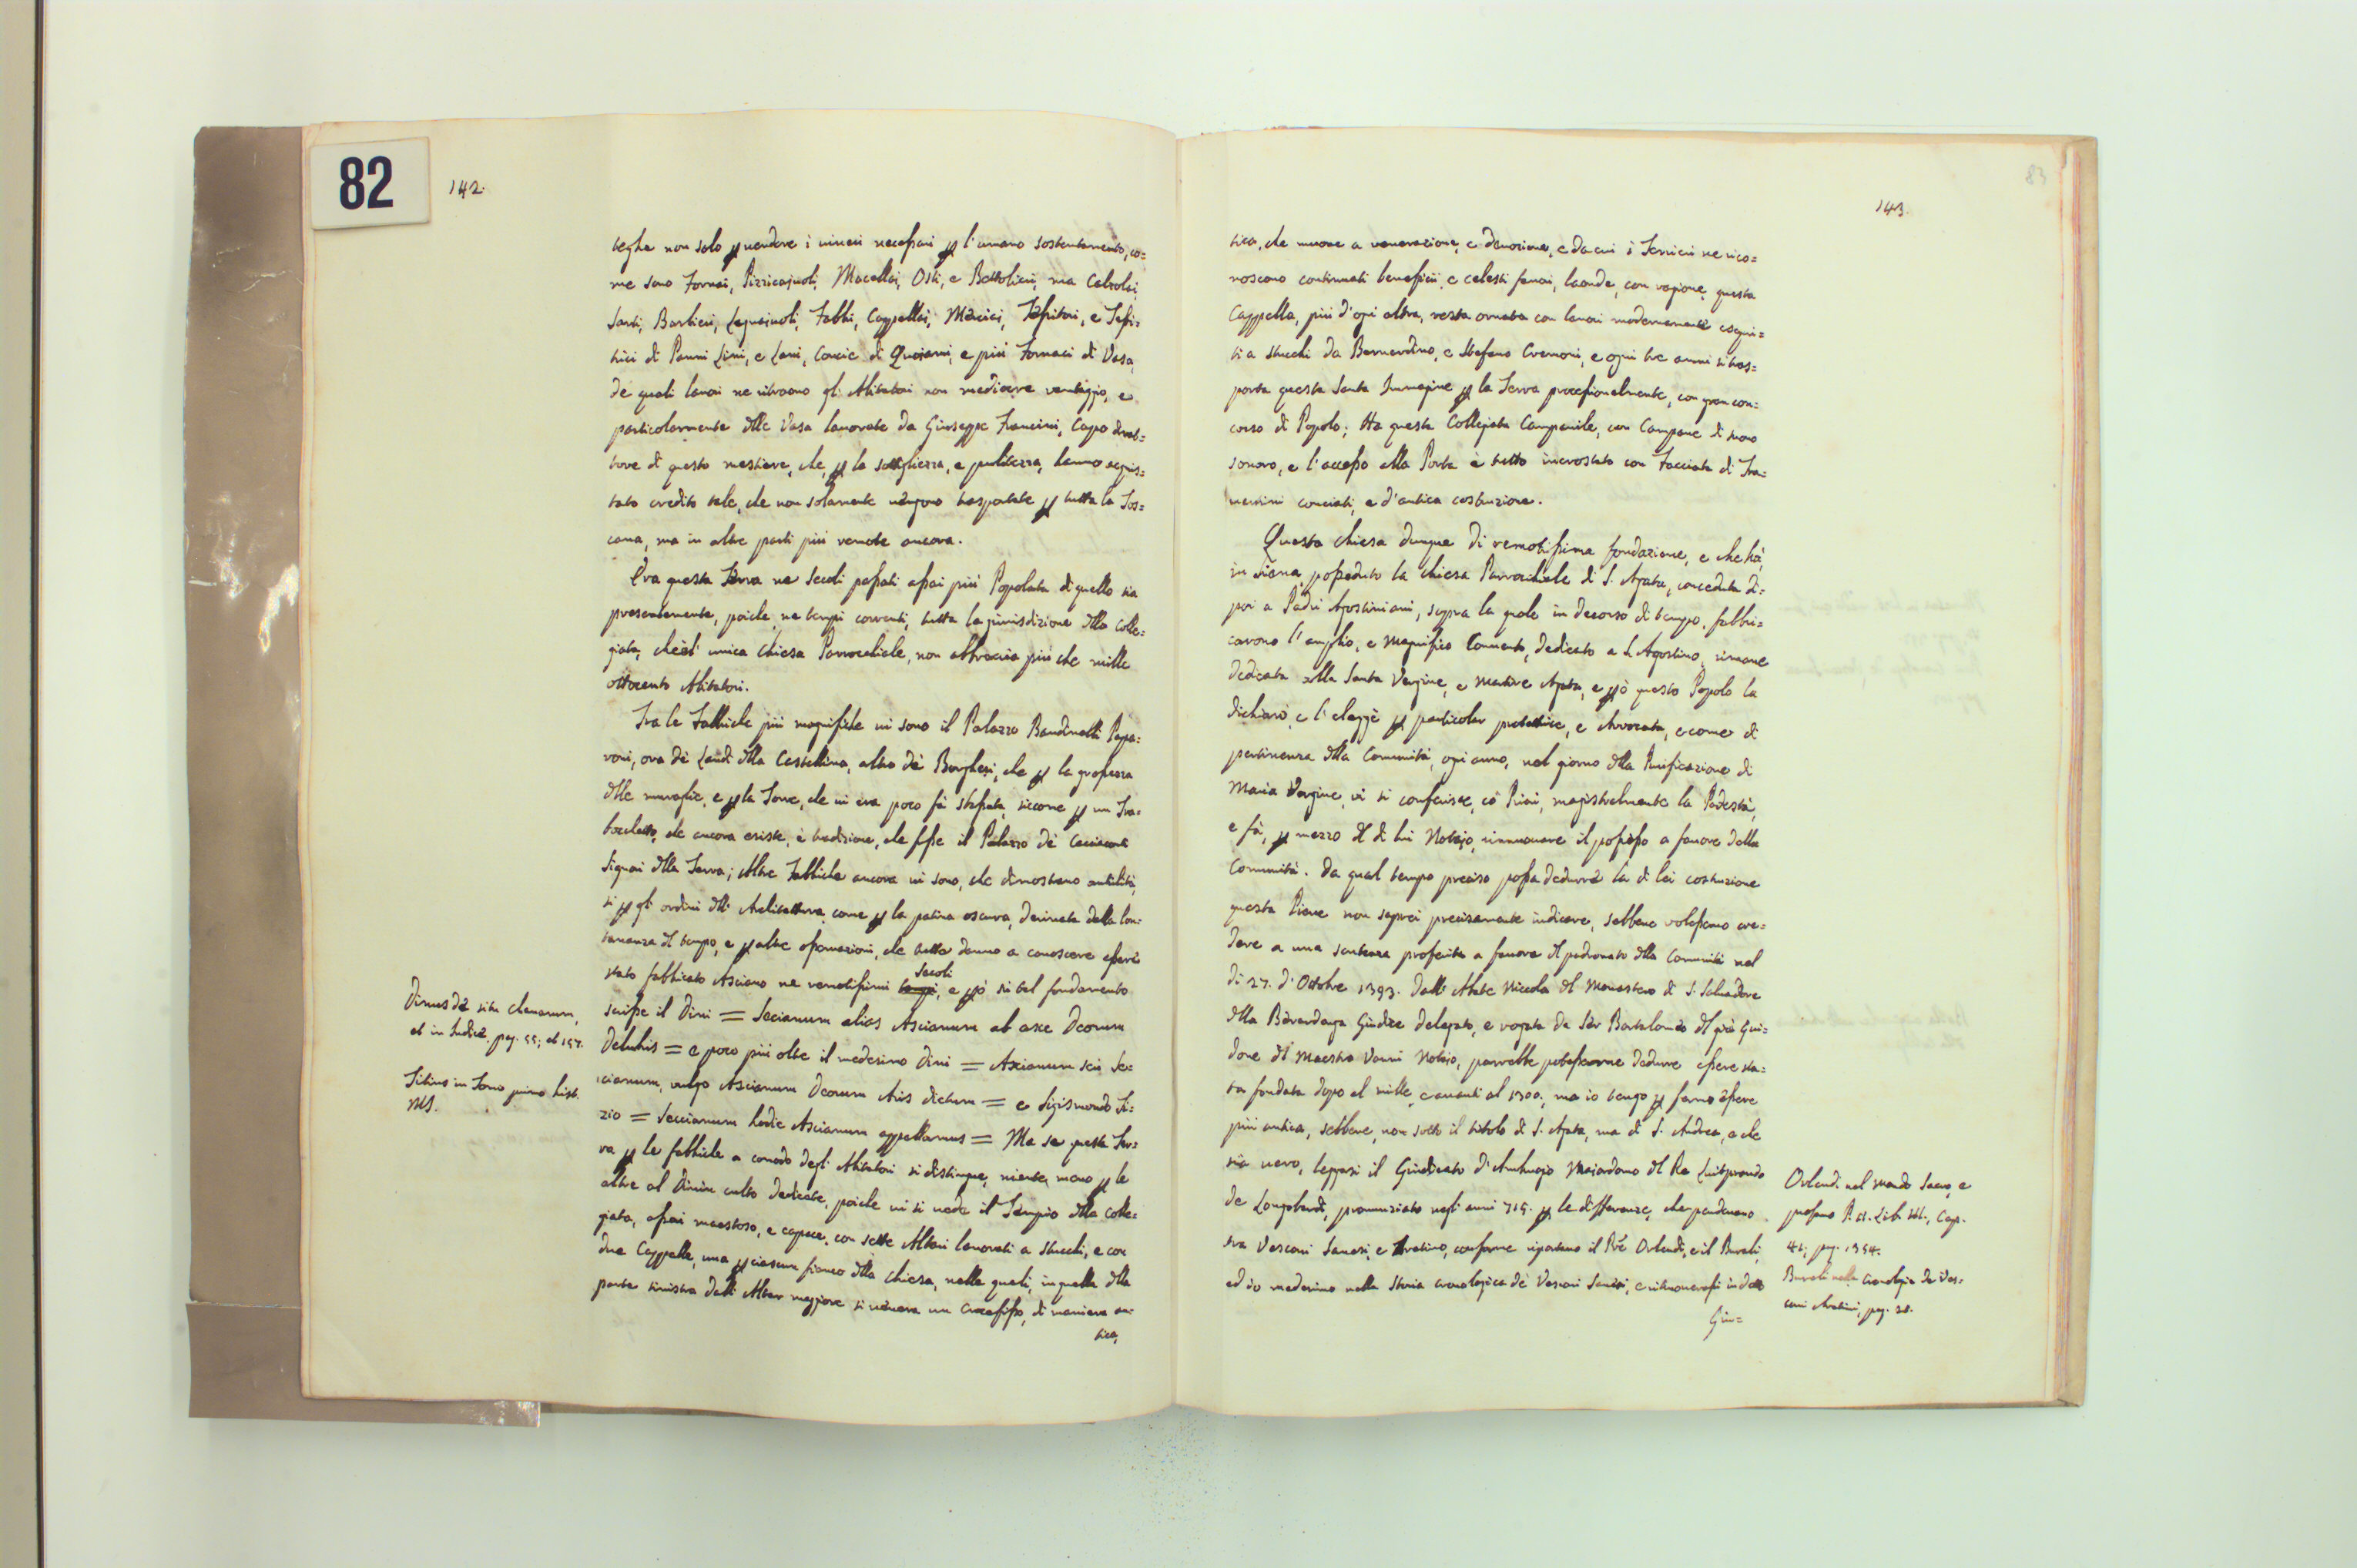 82
142.
teghe non solo p vendere i viveri necessari p l'umano sostentamento, co=
me sono Fornai, Pizzicagnoli, Macellai, Osti, e Bettolieri, ma Calzolai,
Sarti, Barbieri, Legnaiuoli, Fabbri, Cappellai, Merciai, Tessitori, e Tessi=
trici di Panni Lini, e Lani, Concie di Quoiami, e più Fornaci di Vasa,
de quali lavori ne ritraono gl'Abitatori non mediocre vantaggio, e
particolarmente dlle Vasa lavorate da Giuseppe Francini, Capo diret=
tore di questo mestiere, che, p la sottigliezza, e pulitezza, hanno acquis=
tato credito tale, che non solamente vengono trasportate p tutta la Tos=
cana, ma in altre parti più remote ancora.
Era questa Terra ne Secoli passati assai più Popolata di quello sia
presentemente, poiche, ne tempi correnti, tutta la giurisdizione dlla Colle=
giata, che è l'unica Chiesa Parrocchiale, non abbraccia più che mille
ottocento Abitatori.
Tra le Fabbriche più magnifiche vi sono il Palazzo Bandinelli Papa=
roni, ora de Landi dlla Castellina, altro de Borghesi, che p la grossezza
dlle muraglie, e p la Torre, che vi era poco fà sbassata, siccome p un Tra=
bocchetto, che ancora esiste, è tradizione, che fosse il Palazzo de Cacciaconti
Signori dlla Terra; Altre Fabbriche ancora vi sono, che dimostrano antichità,
si p gl'ordini dll'Architettura, come p la patina oscura, derivata dalla lon=
tananza dl tempo, e p altre osservazioni, che tutte danno a conoscere essere
stato fabbricato Asciano ne remotissimi tempi Secoli, e pò si tal fondamento
scrisse il Dini = Sacianum alias Ascianum ab axe Deorum
Delubris = e poco più oltre il medesimo Dini = Axianum seu Sa=
cianum, vulgo Ascianum Deorum Aris dictum = e Sigismondo Ti=
zio = Sacianum hodie Ascianum appellamus = Ma se questa Ter=
ra p le fabbriche a comodo degl'Abitatori si distingue, niente meno p le
altre al Divin culto dedicate, poiche vi si vede il Tempio dlla Colle=
giata, assai maestoso, e capace, con sette Altari lavorati a stucchi, e con
due Cappelle, una p ciascun fianco dlla Chiesa, nelle quali, in quella dlla
parte sinistra dell'Altar maggiore si venera un Crocefisso, di maniera an=
tica,
Dinus de situ Clanarum,
et in Indice, pag. 55; et 157.
Titius in Tomo primo hist.
MS.
83
143.
tica, che muove a venerazione, e devozione, e da cui i Terrieri ne rico=
noscono continuati benefici, e celesti favori, laonde, con ragione, questa
Cappella, più d'ogni altra, resta ornata con lavori modernamente esegui=
ti a stucchi da Bernardino, e Stefano Cremoni, e ogni tre anni si tras=
porta questa Santa Immagine p la Terra processionalmente, con gran con=
corso di Popolo; Ha questa Collegiata Campanile, con Campane di suono
sonoro, e l'accesso alla Porta è tutto incrostato con Facciata di Tra=
vertini conciati, e d'antica costruzione.
Questa Chiesa dunque di remotissima fondazione, e che hà,
in Siena, posseduto la Chiesa Parrocchiale di S. Agata, conceduta di=
poi a Padri Agostiniani, sopra la quale in decorso di tempo, fabbri=
carono l'amplio, e magnifico Convento, dedicato a S. Agostino, rimane
dedicata alla Santa Vergine, e Martire Agata, e pò questo Popolo la
dichiarò, e l'elegge p particolar protettrice, e Avvocata, e come di
pertinenza dlla Comunità, ogni anno, nel giorno dlla Purificazione di
Maria Vergine, vi si conferisce, co Priori, magistralmente la Podestà,
e fà, p mezzo dl di lui Notaio, rinnuovare il possesso a favore della
Comunità. Da qual tempo preciso possa dedurre la di lei costruzione
questa Pieve non saprei precisamente indicare, sebbene volessemo cre=
dere a una sentenza proferita a favore dl padronato dlla Comunità nel
di 27. d'Ottobre 1393. dall'Abate Niccola dl Monastero di S. Salvadore
dlla Berardenga Giudice delegato, e rogata da Ser Bartolomeo dl già Gui=
done dl Maestro Vanni Notaio, parrebbe potessemo dedurre essere sta=
ta fondata dopo el mille, e avanti al 1300., ma io tengo p fermo essere
più antica, sebbene, non sotto il titolo di S. Agata, ma di S. Andrea, e che
sia vero, leggasi il Giudicato d'Ambrogio Maiordomo dl Re Luitprando
de Longobardi, pronunziato negl'anni 715. p le differenze, che pendevano
tra Vescovi Sanesi, e Aretino, conforme riportano il Pre Orlendi, e il Burali,
ed io medesimo nella Storia cronologica de Vescovi Sanesi, e ritrovarassi in detto
Giu=
Orlendi nel Mondo Sacro, e
profano P. Lib. Cap.
41, pag. 1354.
Burali nella Cronologia de Ves=
covi Aretini, pag. 20.